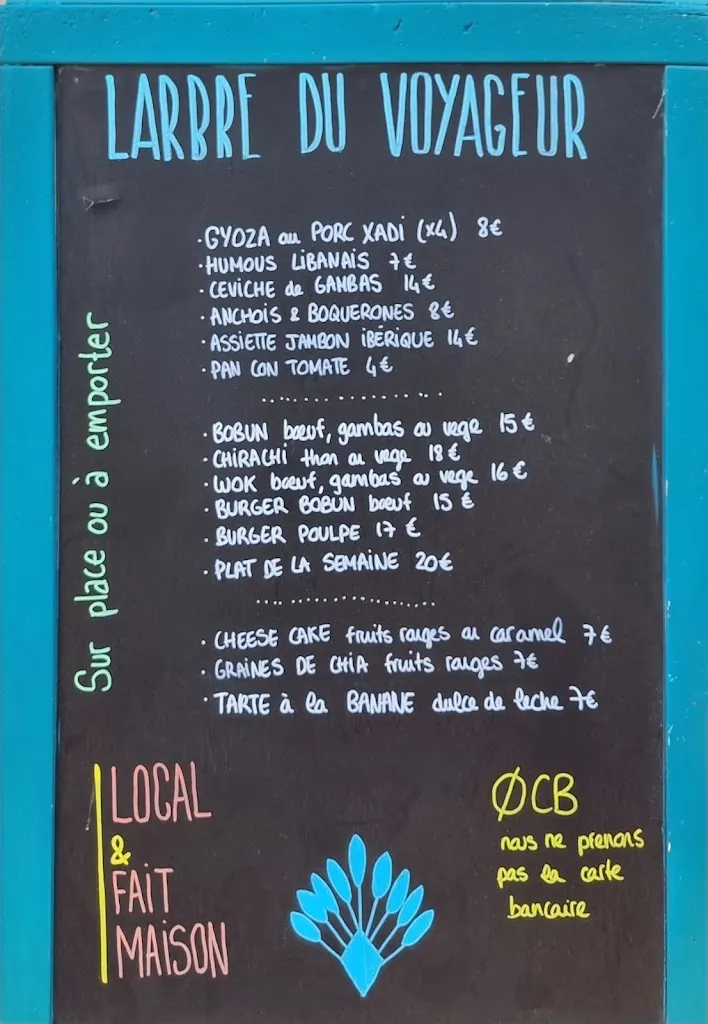 LARBRE DU VOYAGEUR
· GYOZA au PORC XADI (x4) 8€
· HUMOUS LiBANAIS 7€
· CEVICHE de GAMBAS 14€
· ANCHOIS & BOQUERONES 8€
· ASSIETTE JAMBON iBÉRIQUE 14€
· PAN CON TOMATE 4€
..................
· BOBUN bœuf, gambas ou vege 15€
· CHiRACHi thon ou vege 18€
· WOK bœuf, gambas ou vege 16€
· BURGER BOBUN bœuf 15€
· BURGER POULPE 17€
· PLAT DE LA SEMAINE 20€
..................
· CHEESE CAKE fruits rouges ou caramel 7€
· GRAINES DE CHIA fruits rouges 7€
· TARTE à la BANANE dulce de leche 7€
Sur place ou à emporter
LOCAL
&
FAIT
MAISON
ØCB
nous ne prenons
pas la carte
bancaire